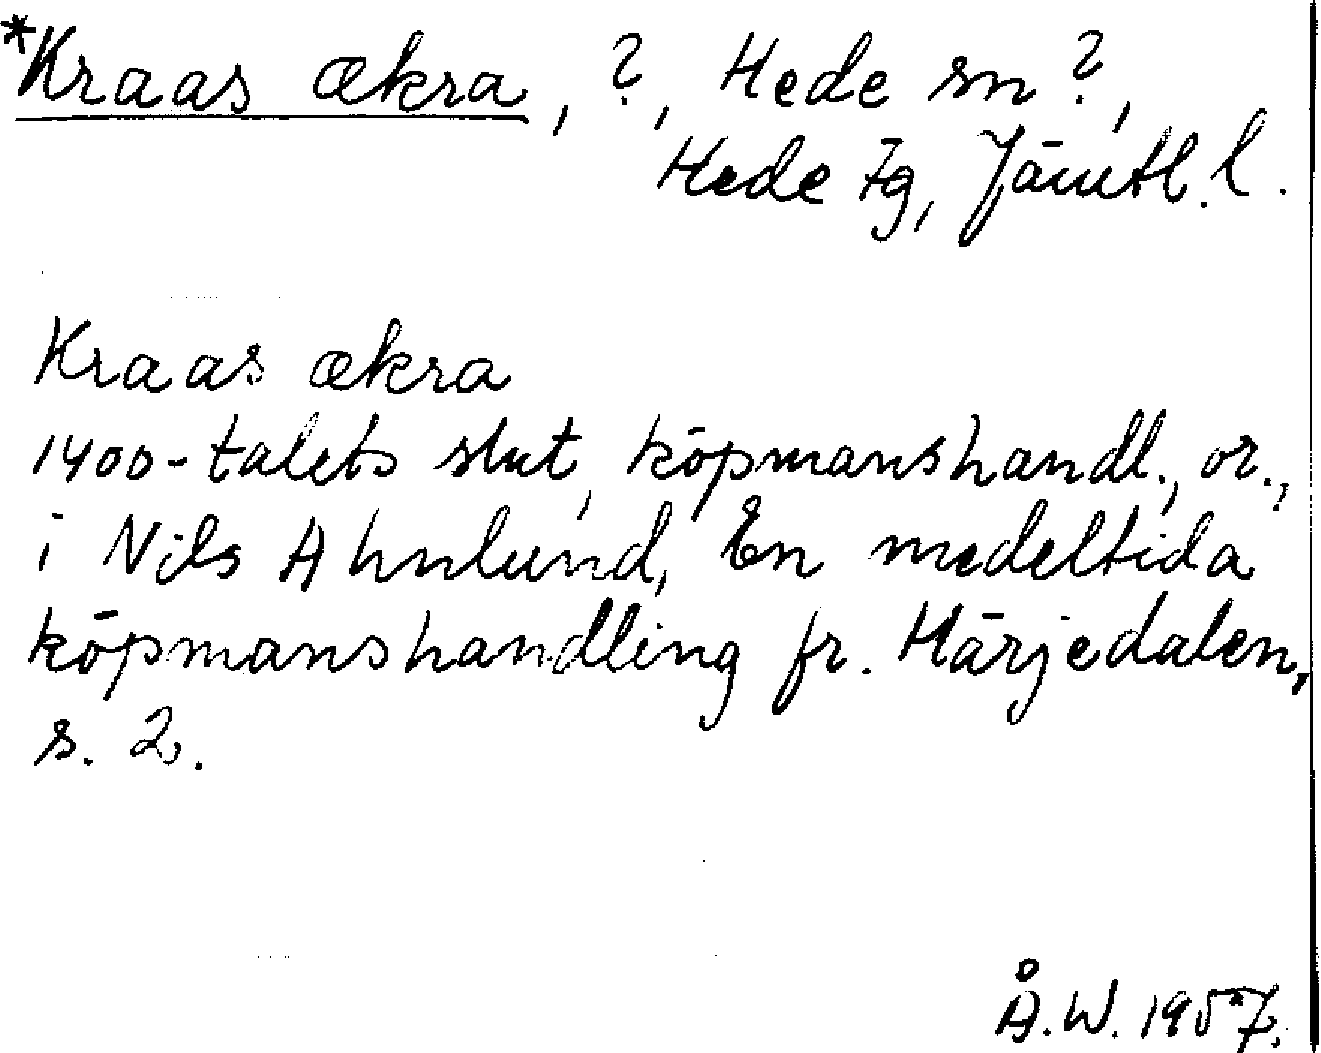 *Kraas ækra, ?, Hede sn ?,
Hede tg, Jämtl. l.
Kraas ækra
1400-talets slut, köpmanshandl., or.,
i Nils Ahnlund, En medeltida
köpmanshandling fr. Härjedalen,
s. 2.
Å.W. 1957.